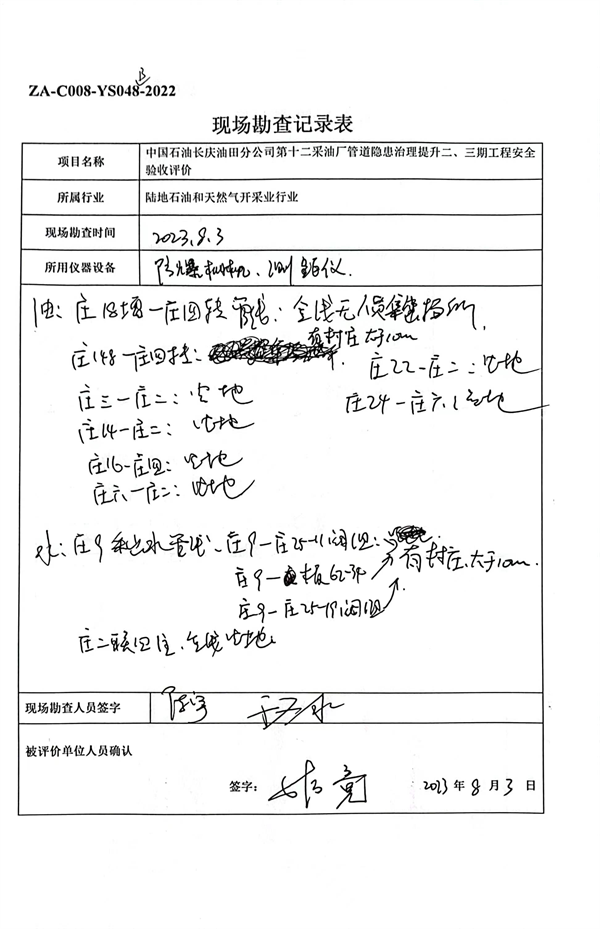 B
ZA-C008-YS048-2022
现场勘查记录表
项目名称
中国石油长庆油田分公司第十二采油厂管道隐患治理提升二、三期工程安全
验收评价
所属行业
陆地石油和天然气开采业行业
现场勘查时间
2023.8.3
所用仪器设备
防爆相机、测距仪
油：庄18增—庄四转管线：全线无人员密集场所
庄148—庄四转：有村庄大于10m
庄22—庄二：空地
庄三—庄二：空地
庄24—庄六：空地
庄14—庄二：空地
庄16—庄四：空地
庄六—庄二：空地
水：庄9 水管线、庄9—庄25-11阀组：
有村庄大于10m.
庄9— 62-34
庄9—庄25-19阀组
庄二联 全线空地
现场勘查人员签字
被评价单位人员确认
签字：
2023 年 8 月 3 日